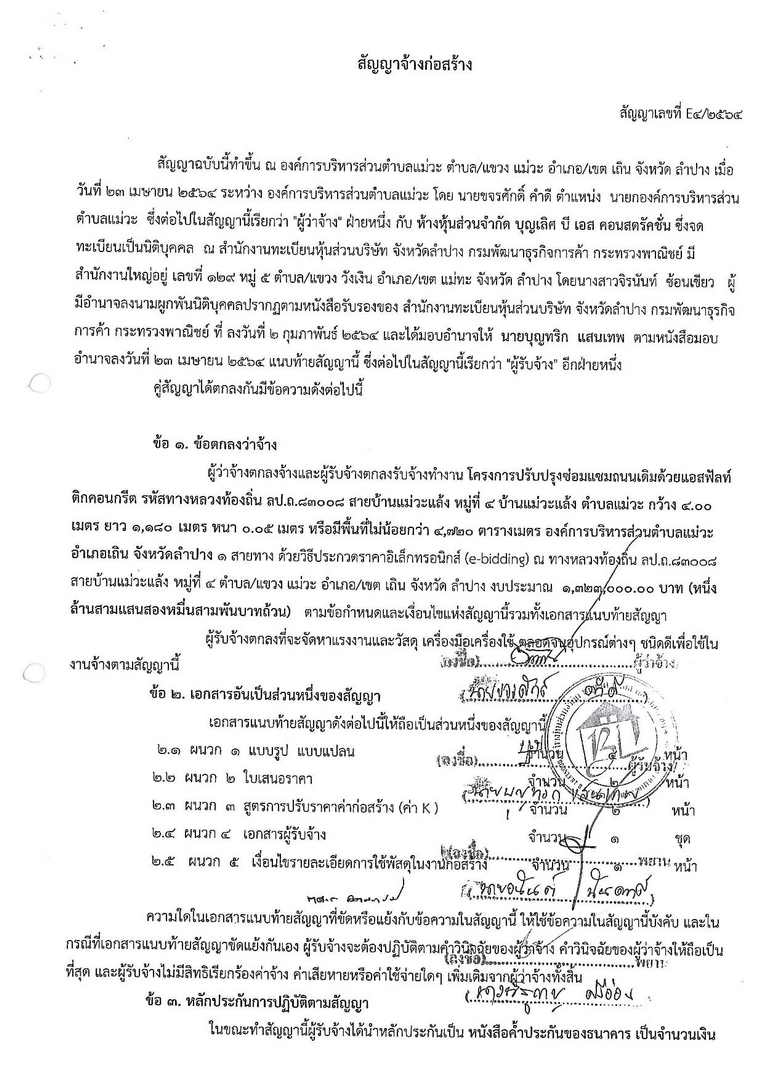 สัญญาจ้างก่อสร้าง
สัญญาเลขที่ E๔/๒๕๖๔
สัญญาฉบับนี้ทำขึ้น ณ องค์การบริหารส่วนตำบลแม่วะ ตำบล/แขวง แม่วะ อำเภอ/เขต เถิน จังหวัด ลำปาง เมื่อ
วันที่ ๒๓ เมษายน ๒๕๖๔ ระหว่าง องค์การบริหารส่วนตำบลแม่วะ โดย นายขจรศักดิ์ คำดี ตำแหน่ง นายกองค์การบริหารส่วน
ตำบลแม่วะ ซึ่งต่อไปในสัญญานี้เรียกว่า "ผู้ว่าจ้าง" ฝ่ายหนึ่ง กับ ห้างหุ้นส่วนจำกัด บุญเลิศ บี เอส คอนสตรัคชั่น ซึ่งจด
ทะเบียนเป็นนิติบุคคล ณ สำนักงานทะเบียนหุ้นส่วนบริษัท จังหวัดลำปาง กรมพัฒนาธุรกิจการค้า กระทรวงพาณิชย์ มี
สำนักงานใหญ่อยู่ เลขที่ ๑๒๙ หมู่ ๕ ตำบล/แขวง วังเงิน อำเภอ/เขต แม่ทะ จังหวัด ลำปาง โดยนางสาวจิรนันท์ ซ้อนเขียว ผู้
มีอำนาจลงนามผูกพันนิติบุคคลปรากฏตามหนังสือรับรองของ สำนักงานทะเบียนหุ้นส่วนบริษัท จังหวัดลำปาง กรมพัฒนาธุรกิจ
การค้า กระทรวงพาณิชย์ ที่ ลงวันที่ ๒ กุมภาพันธ์ ๒๕๖๔ และได้มอบอำนาจให้ นายบุญทริก แสนเทพ ตามหนังสือมอบ
อำนาจลงวันที่ ๒๓ เมษายน ๒๕๖๔ แนบท้ายสัญญานี้ ซึ่งต่อไปในสัญญานี้เรียกว่า "ผู้รับจ้าง" อีกฝ่ายหนึ่ง
คู่สัญญาได้ตกลงกันมีข้อความดังต่อไปนี้
ข้อ ๑. ข้อตกลงว่าจ้าง
ผู้ว่าจ้างตกลงจ้างและผู้รับจ้างตกลงรับจ้างทำงาน โครงการปรับปรุงซ่อมแซมถนนเดิมด้วยแอสฟัลท์
ติกคอนกรีต รหัสทางหลวงท้องถิ่น ลป.ถ.๘๓๐๐๘ สายบ้านแม่วะแล้ง หมู่ที่ ๔ บ้านแม่วะแล้ง ตำบลแม่วะ กว้าง ๔.๐๐
เมตร ยาว ๑,๑๘๐ เมตร หนา ๐.๐๕ เมตร หรือมีพื้นที่ไม่น้อยกว่า ๔,๗๒๐ ตารางเมตร องค์การบริหารส่วนตำบลแม่วะ
อำเภอเถิน จังหวัดลำปาง ๑ สายทาง ด้วยวิธีประกวดราคาอิเล็กทรอนิกส์ (e-bidding) ณ ทางหลวงท้องถิ่น ลป.ถ.๘๓๐๐๘
สายบ้านแม่วะแล้ง หมู่ที่ ๔ ตำบล/แขวง แม่วะ อำเภอ/เขต เถิน จังหวัด ลำปาง งบประมาณ ๑,๓๒๓,๐๐๐.๐๐ บาท (หนึ่ง
ล้านสามแสนสองหมื่นสามพันบาทถ้วน) ตามข้อกำหนดและเงื่อนไขแห่งสัญญานี้รวมทั้งเอกสารแนบท้ายสัญญา
ผู้รับจ้างตกลงที่จะจัดหาแรงงานและวัสดุ เครื่องมือเครื่องใช้ ตลอดจนอุปกรณ์ต่างๆ ชนิดดีเพื่อใช้ใน
งานจ้างตามสัญญานี้
(ลงชื่อ)....................ผู้ว่าจ้าง
ข้อ ๒. เอกสารอันเป็นส่วนหนึ่งของสัญญา
เอกสารแนบท้ายสัญญาดังต่อไปนี้ให้ถือเป็นส่วนหนึ่งของสัญญานี้
๒.๑ ผนวก ๑ แบบรูป แบบแปลน จำนวน ๕ หน้า
(ลงชื่อ)....................ผู้รับจ้าง
๒.๒ ผนวก ๒ ใบเสนอราคา จำนวน ๒ หน้า
๒.๓ ผนวก ๓ สูตรการปรับราคาค่าก่อสร้าง (ค่า K ) จำนวน ๒ หน้า
๒.๔ ผนวก ๔ เอกสารผู้รับจ้าง จำนวน ๑ ชุด
(ลงชื่อ)....................พยาน
๒.๕ ผนวก ๕ เงื่อนไขรายละเอียดการใช้พัสดุในงานก่อสร้าง จำนวน ๑ หน้า
ความใดในเอกสารแนบท้ายสัญญาที่ขัดหรือแย้งกับข้อความในสัญญานี้ ให้ใช้ข้อความในสัญญานี้บังคับ และใน
กรณีที่เอกสารแนบท้ายสัญญาขัดแย้งกันเอง ผู้รับจ้างจะต้องปฏิบัติตามคำวินิจฉัยของผู้ว่าจ้าง คำวินิจฉัยของผู้ว่าจ้างให้ถือเป็น
(ลงชื่อ)....................พยาน
ที่สุด และผู้รับจ้างไม่มีสิทธิเรียกร้องค่าจ้าง ค่าเสียหายหรือค่าใช้จ่ายใดๆ เพิ่มเติมจากผู้ว่าจ้างทั้งสิ้น
ข้อ ๓. หลักประกันการปฏิบัติตามสัญญา
ในขณะทำสัญญานี้ผู้รับจ้างได้นำหลักประกันเป็น หนังสือค้ำประกันของธนาคาร เป็นจำนวนเงิน